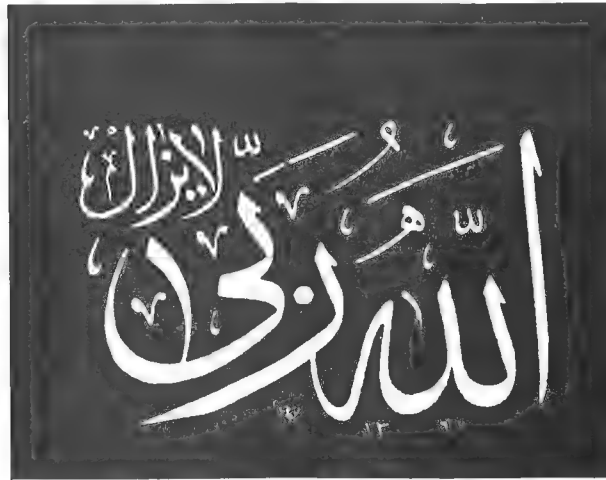 اللّٰهُ رَبّى لا يزال